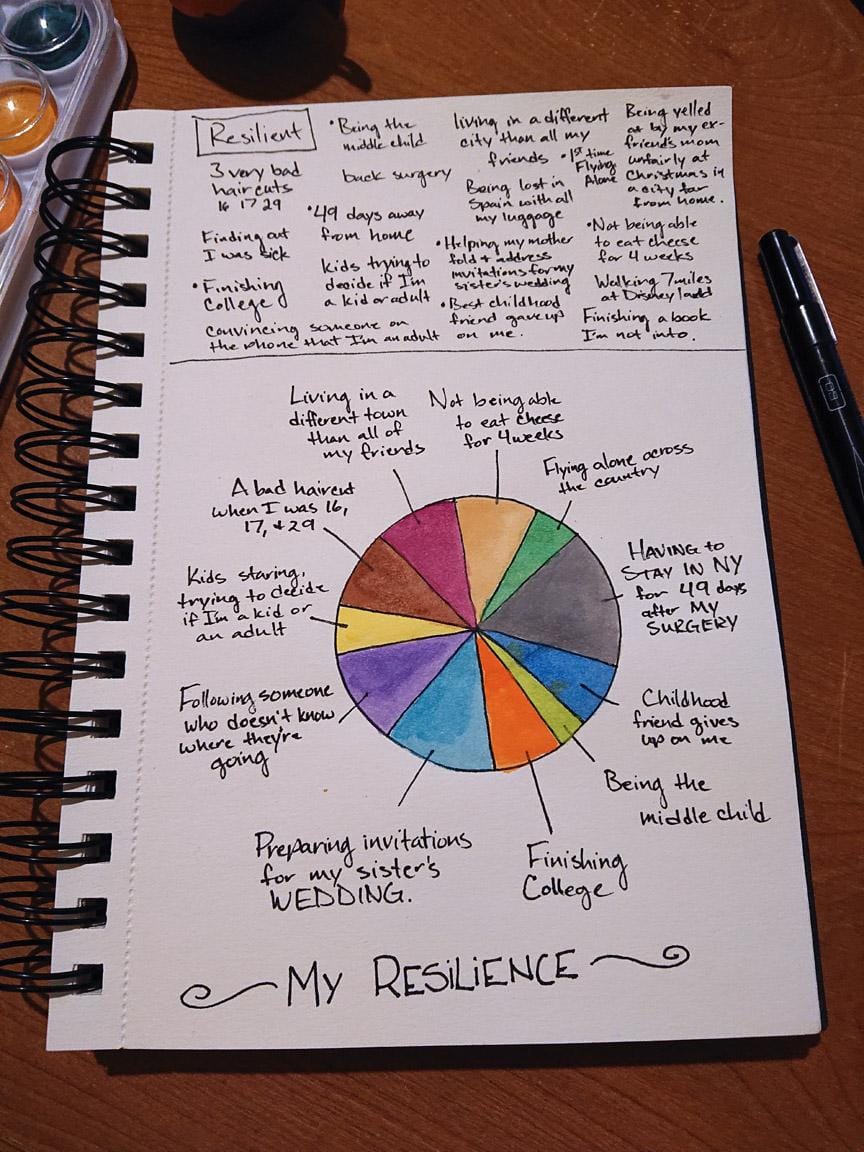 Resilient
3 very bad
haircuts
16 17 29
Finding out
I was sick
• Finishing
College
convincing someone on
the phone that I'm an adult
• Being the
middle child
back surgery
• 49 days away
from home
kids trying to
decide if I'm
a kid or adult
living in a different
city than all my
friends
• 1st time
Flying
Alone
Being lost in
Spain with all
my luggage
• Helping my mother
fold + address
invitations for my
sister's wedding
• Best childhood
friend gave up
on me.
Being yelled
at by my ex-
friend's mom
unfairly at
Christmas in
a city far
from home.
• Not being able
to eat cheese
for 4 weeks
Walking 7 miles
at Disneyland
Finishing a book
I'm not into.
Living in a
different town
than all of
my friends
Not being able
to eat cheese
for 4 weeks
Flying alone across
the country
A bad haircut
when I was 16,
17, + 29
HAVING to
STAY IN NY
for 49 days
after MY
SURGERY
Kids staring,
trying to decide
if I'm a kid or
an adult
Following someone
who doesn't know
where they're
going
Childhood
friend gives
up on me
Being the
middle child
Preparing invitations
for my sister's
WEDDING.
Finishing
College
My RESILIENCE